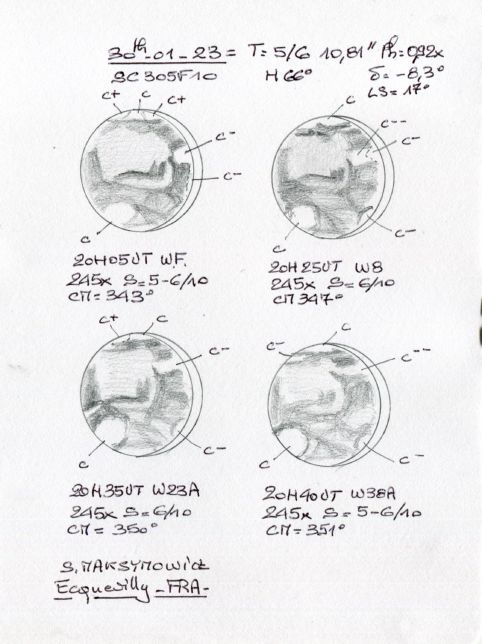 30th-01-23 = T: 5/6 10,81" Ph: 0,92x
SC305F10 H 66° δ= -8,3°
LS= 17°
C+ C C+
C-
C-
C
C
C--
C-
C-
C
20H05UT WF.
245x S=5-6/10
CM= 343°
20H25UT W8
245x S=6/10
CM 347°
C+ C
C-
C-
C
C
C-
C--
C-
C
20H35UT W23A
245x S=6/10
CM= 350°
20H40UT W38A
245x S=5-6/10
CM= 351°
S. MAKSYMOWICZ
Ecquevilly - FRA -